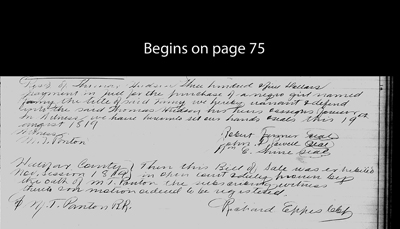 Begins on page 75
Thomas Hudson three hundred & five Dollars
payment in full for the purchase of a negro girl named
Fanny the title of said Fanny we hereby warrant & defend
unto the said Thomas Hudson his heirs assigns forever
In witness we have hereunto set our hands seals this 19
August 1819
Witness
M. T. Ponton
Robert Farmer seal
John Jewell seal
Seal
County } Then this Bill of Sale was exhibited
Nov. Session 18 in open court & duly proven by
the oath of M. T. Ponton the subscribing witness
thereto on motion ordered to be registered.
M. T. Ponton P.R.
Richard Eppes Clk